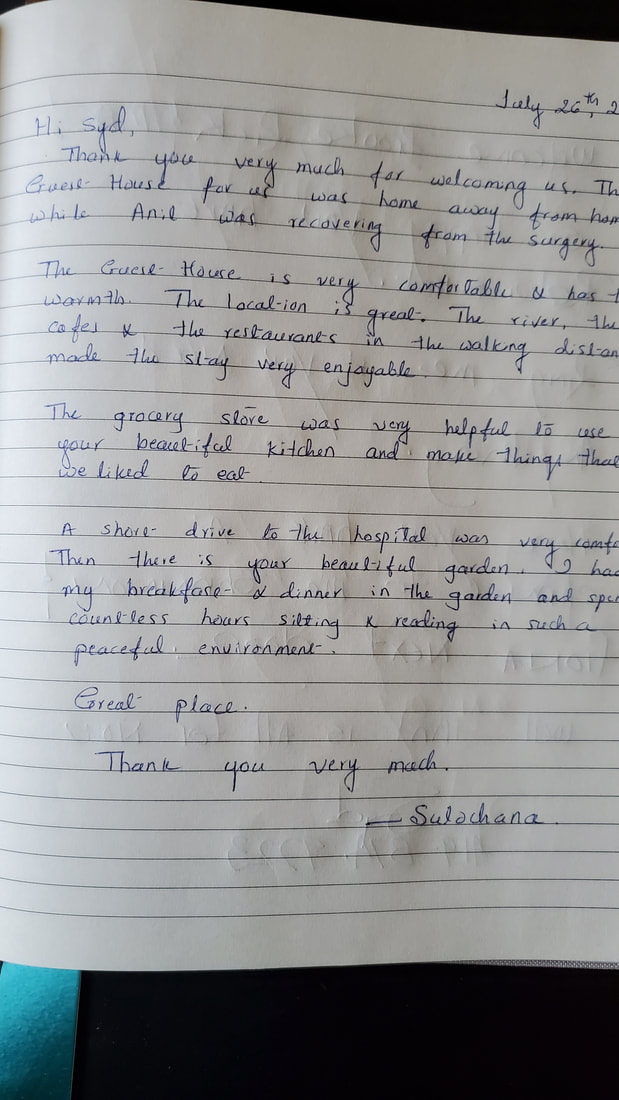 July 26th, 2
Hi Syd,
Thank you very much for welcoming us. Th
Guest House for us was home away from hom
while Anil was recovering from the surgery.
The Guest House is very comfortable & has t
warmth. The location is great. The river, the
cafes & the restaurants in the walking distan
made the stay very enjoyable.
The grocery store was very helpful to use
your beautiful kitchen and make things that
we liked to eat.
A short drive to the hospital was very comfo
Then there is your beautiful garden. I had
my breakfast & dinner in the garden and spe
countless hours sitting & reading in such a
peaceful environment.
Great place.
Thank you very much.
— Sulochana.